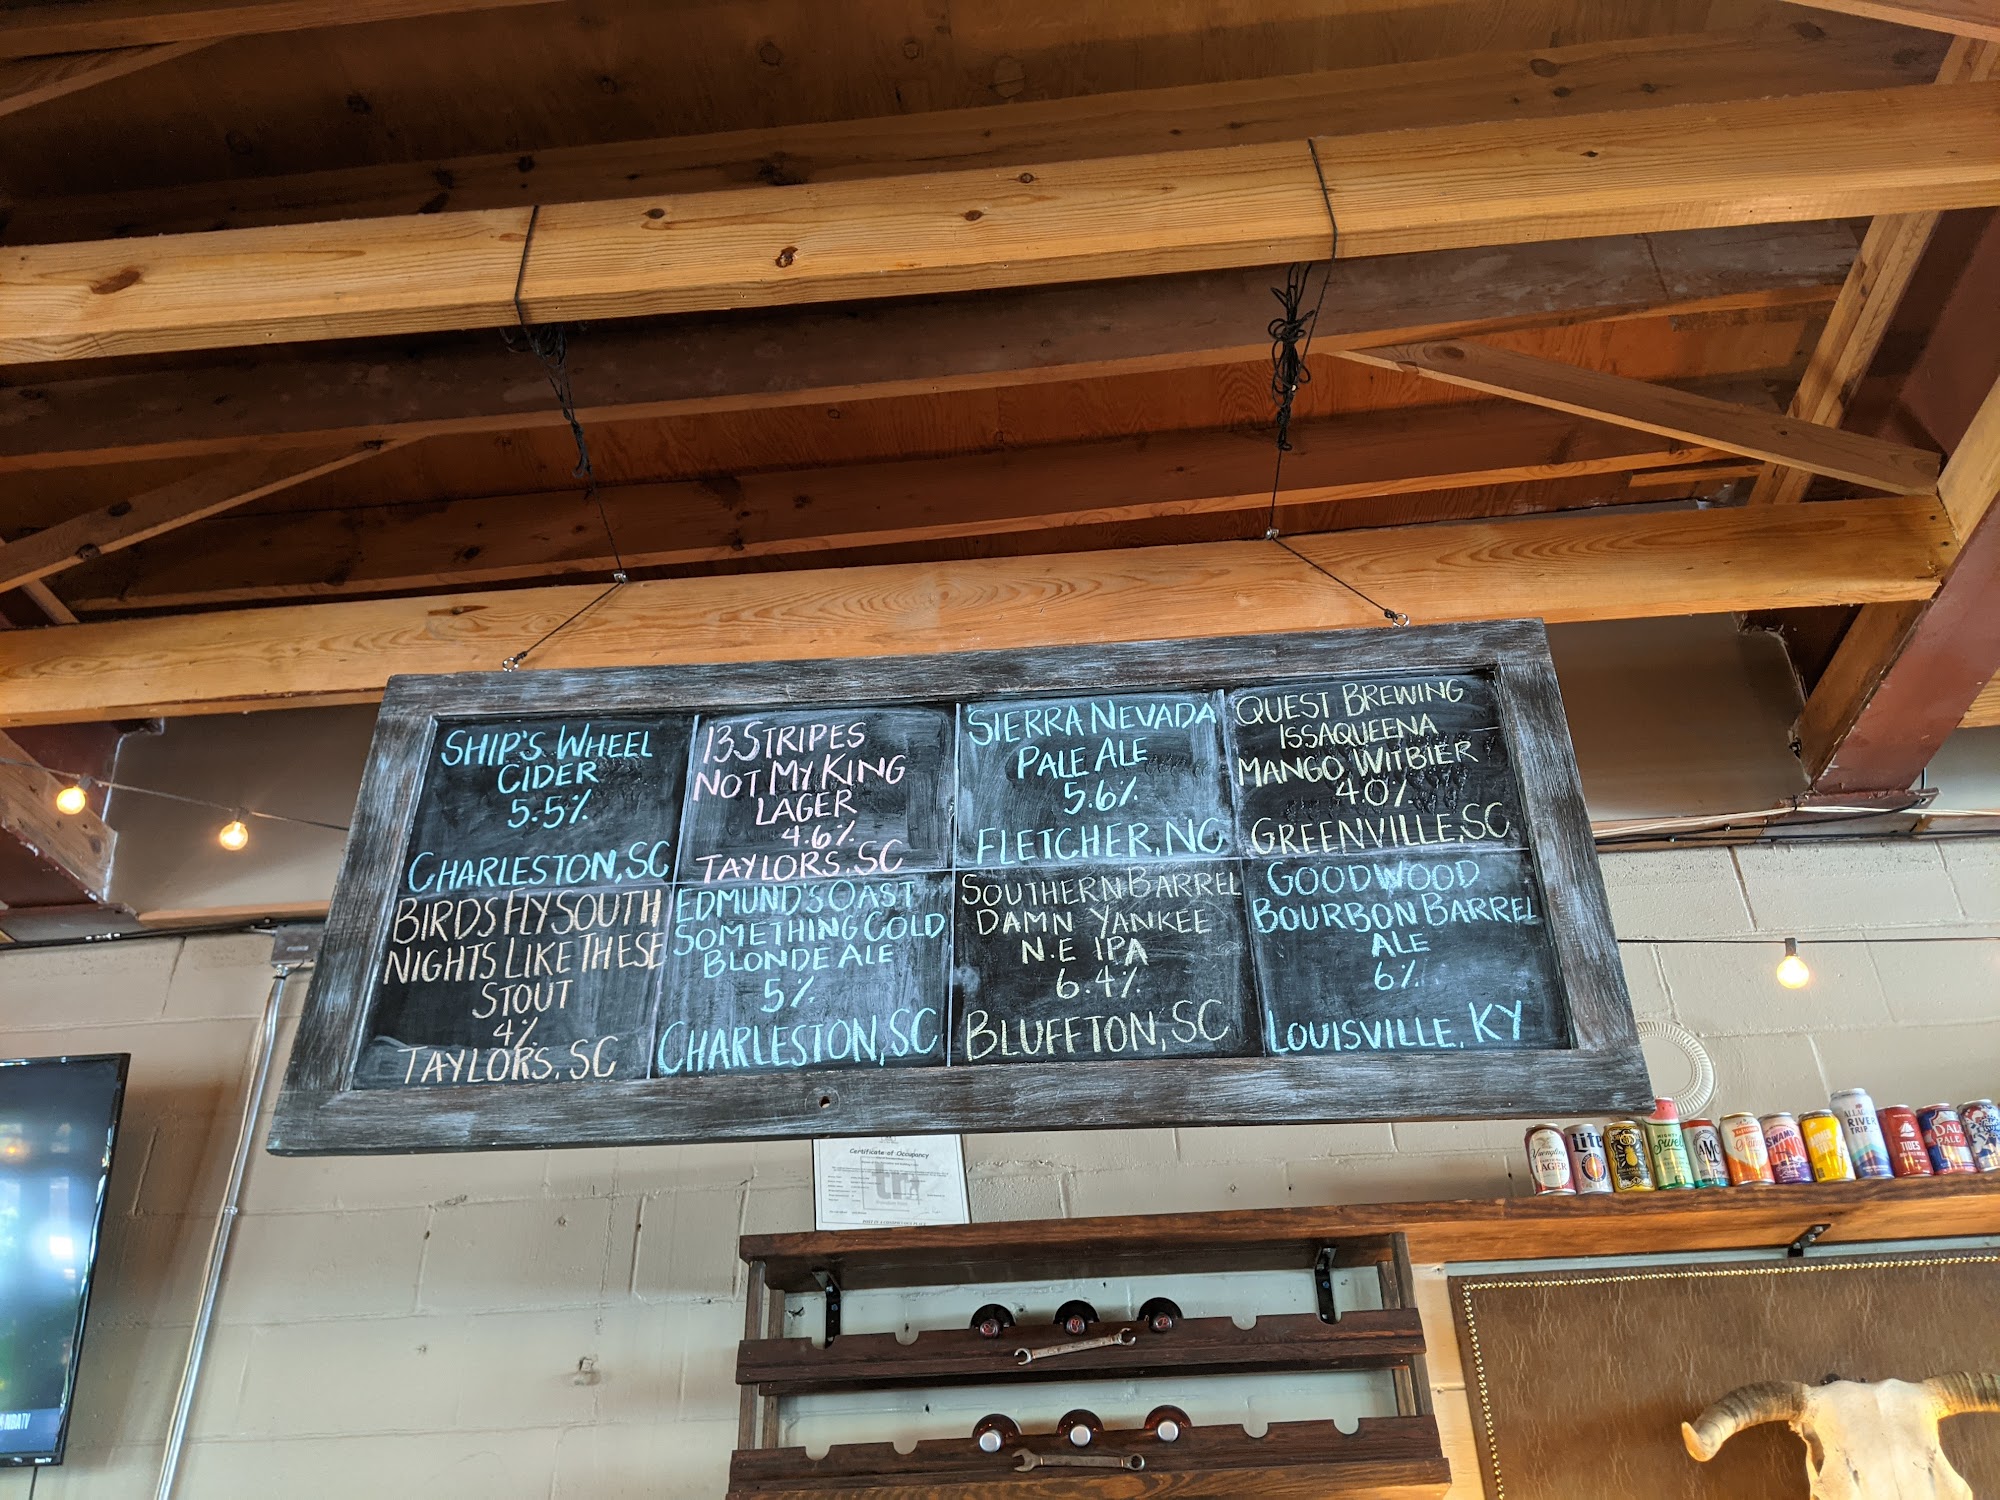 SHIP'S WHEEL
CIDER
5.5%
CHARLESTON, SC
13 STRIPES
NOT MY KING
LAGER
4.6%
TAYLORS, SC
SIERRA NEVADA
PALE ALE
5.6%
FLETCHER, NC
QUEST BREWING
ISSAQUEENA
MANGO WITBIER
4.0%
GREENVILLE, SC
BIRDS FLY SOUTH
NIGHTS LIKE THESE
STOUT
4%
TAYLORS, SC
EDMUND'S OAST
SOMETHING COLD
BLONDE ALE
5%
CHARLESTON, SC
SOUTHERN BARREL
DAMN YANKEE
N.E IPA
6.4%
BLUFFTON, SC
GOODWOOD
BOURBON BARREL
ALE
6%
LOUISVILLE, KY
Certificate of Occupancy
tr
Yuengling
LAGER
Lite
SWAMP
RIVER
TRIP
TIDES
PALE
NBATV